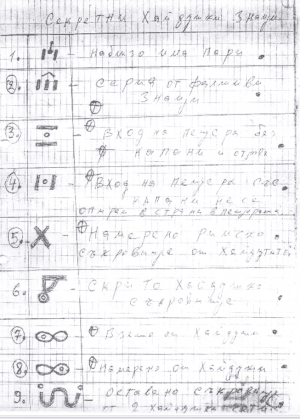 Секретни Хайдушки Знаци
1. - Наблизо има Пари
2. - Серия от фалшиви
знаци
3. - Вход на пещера без
капани и отрова
4. - Вход на пещера със
капани не се
опитвай в страни в пещерата
5. X - Намерено римско
съкровище от Хайдутите
6. - Скрито Хайдушко
съкровище
7. - Взето от Хайдути
8. - Намерено от Хайдути
9. - Оставено съкровище
от 2 хайдути